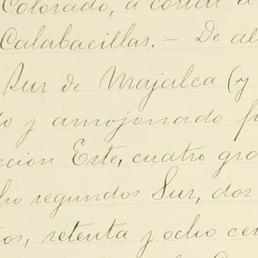 Colorado, a cortar a
Calabacillas. — De al
Sur de Majalca (y
do y amojonado
ccion Este, cuatro gra
ho segundos Sur, dos
os, setenta y ocho cen